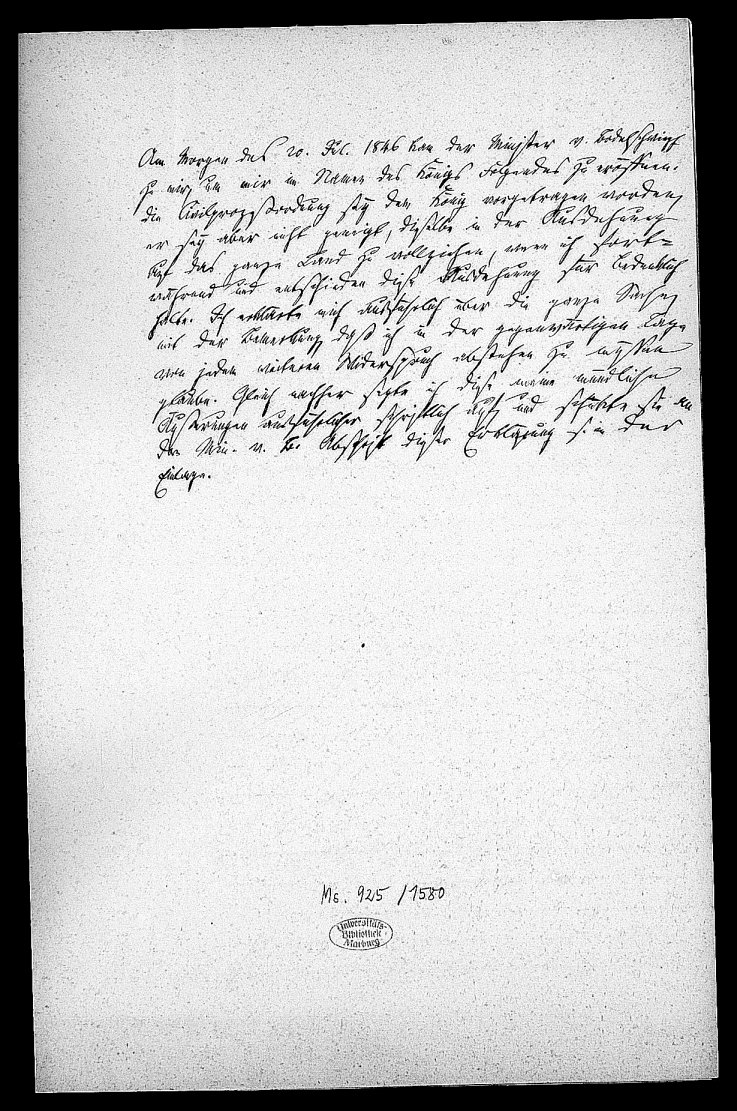 Am Morgen des 20. Jul. 1846 kam der Minister v. Bodelschwingh
zu mir, um mir im Namen des Königs Folgendes zu eröffnen:
die Civilprozeßordnung sey dem König vorgetragen worden,
er sey aber nicht geneigt, dieselbe in der Ausdehnung
auf das ganze Land zu vollziehen, wenn ich fort-
während und entschieden diese Ausdehnung für bedenklich
halte. Ich erklärte mich ausführlich über die ganze Sache,
mit der Bemerkung, daß ich in der gegenwärtigen Lage
von jedem weiteren Widerspruch abstehen zu müssen
glaube. Gleich nachher setzte ich diese meine mündlichen
Äußerungen ausführlicher schriftlich auf, und schickte sie an
den Min. v. B. Abschrift dieser Erklärung s. in der
Einlage.
Ms. 925/1580
Universitäts-
Bibliothek
Marburg